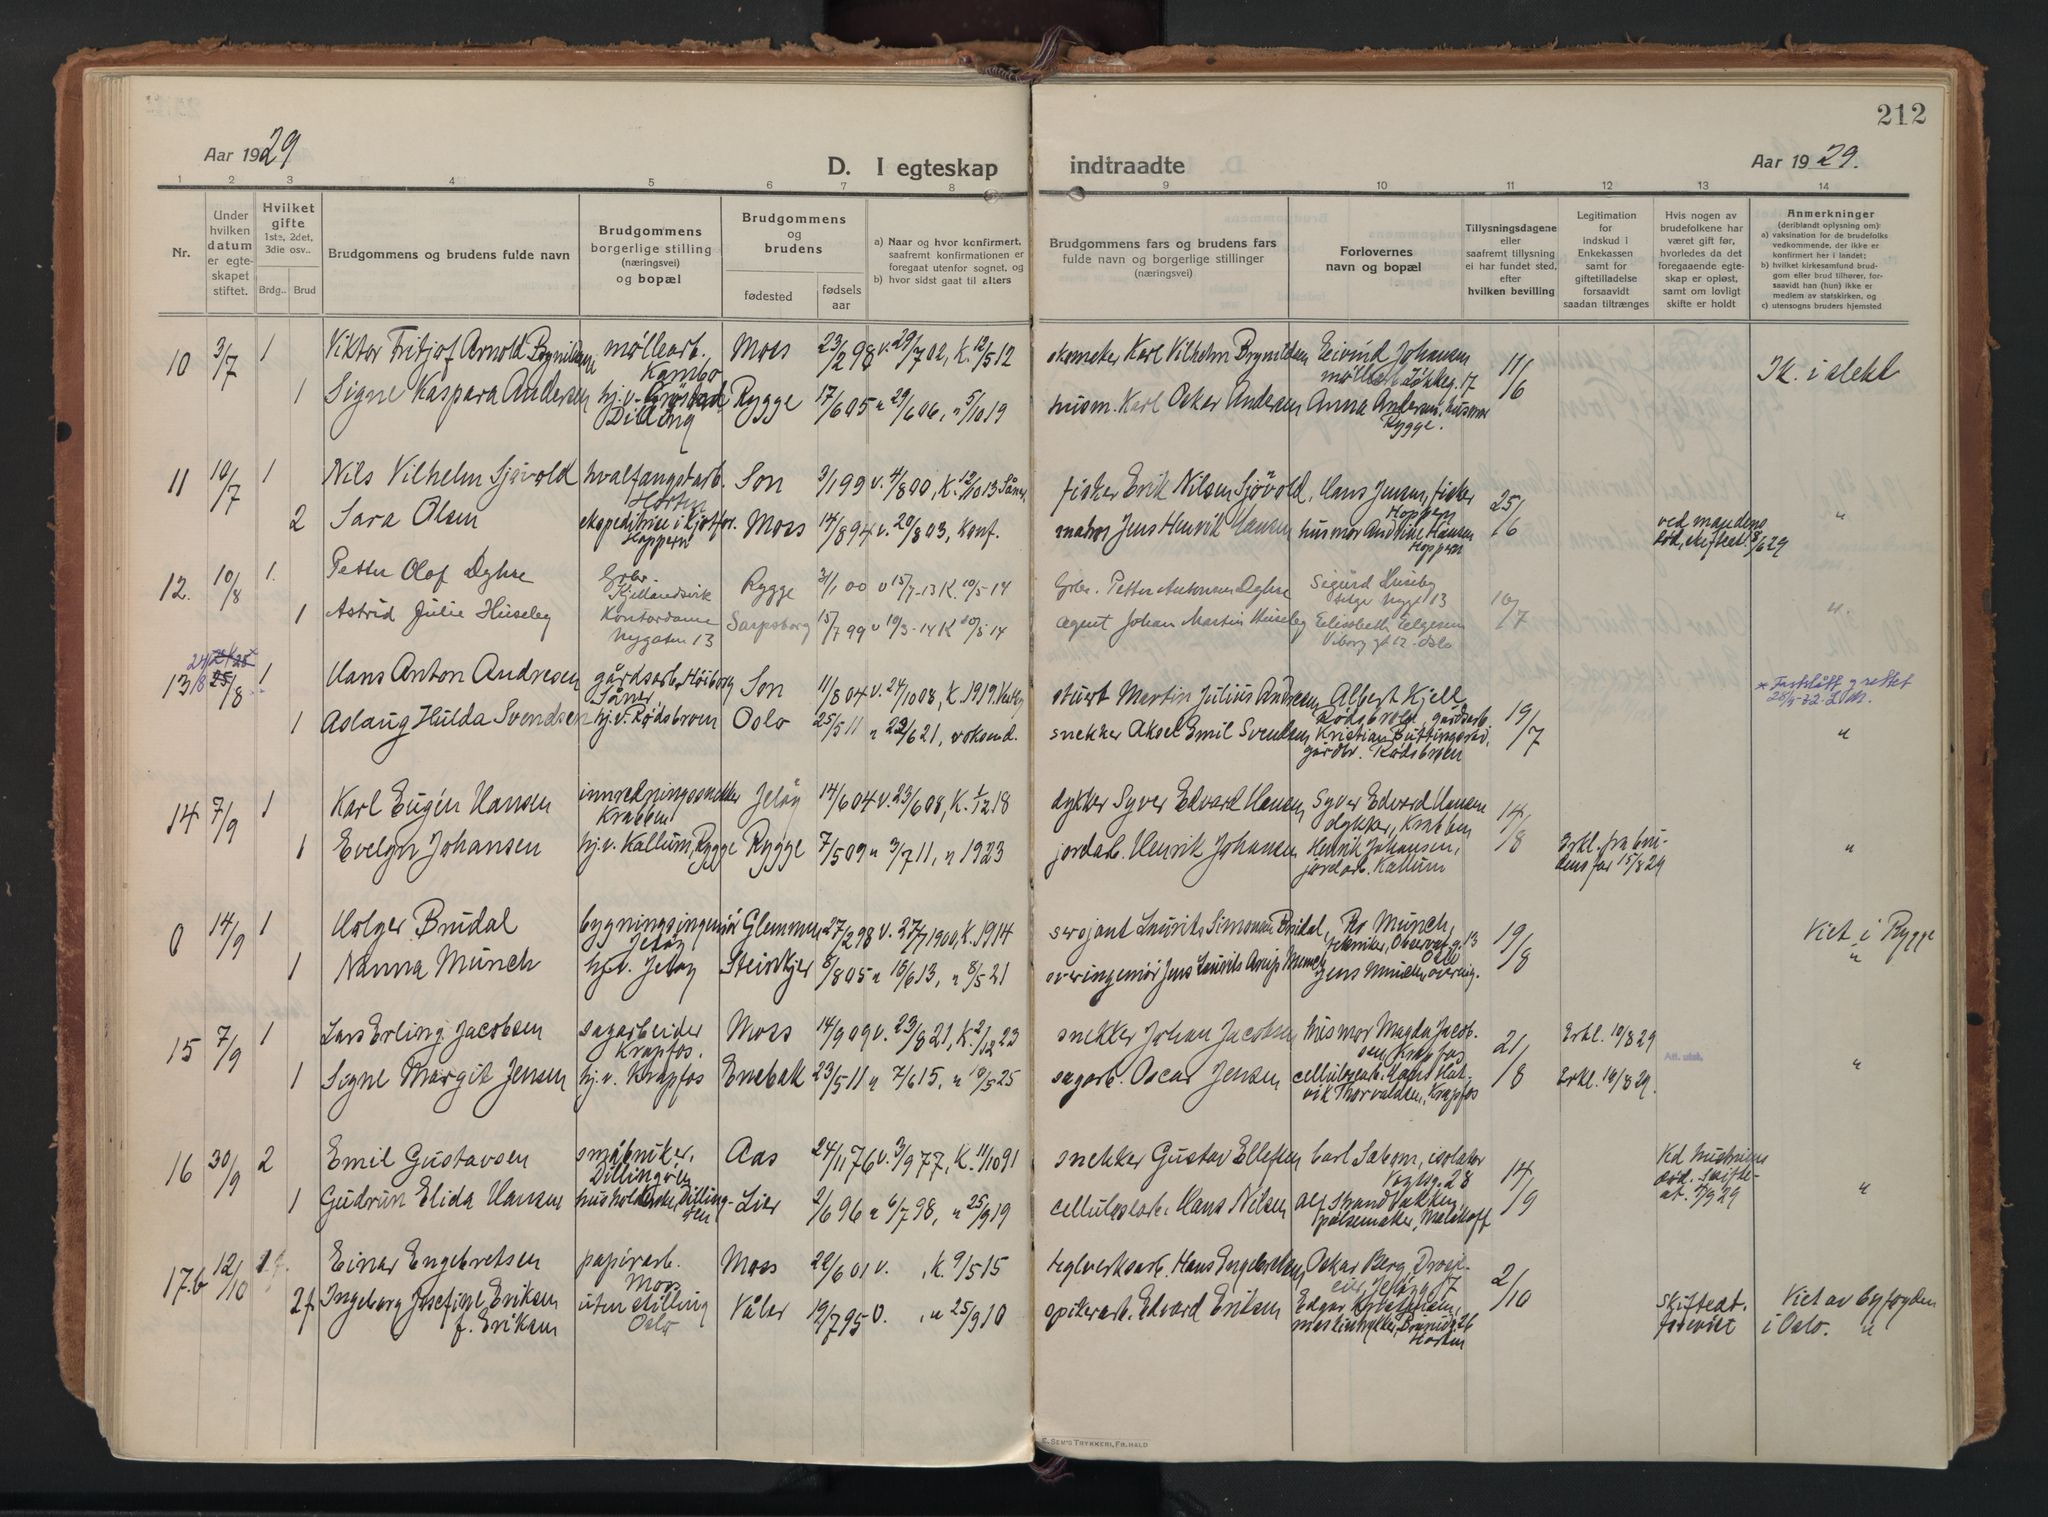 212
Aar 1929
D. I egteskap
indtraadte
Aar 1929.
1 2 3 4 5 6 7 8 9 10 11 12 13 14
Nr.
Under hvilken datum er egteskapet stiftet.
Hvilket gifte 1ste, 2det, 3die osv..
Brdg.. Brud
Brudgommens og brudens fulde navn
Brudgommens borgerlige stilling (næringsvei) og bopæl
Brudgommens og brudens
fødested
fødsels aar
a) Naar og hvor konfirmert, saafremt konfirmationen er foregaat utenfor sognet, og
b) hvor sidst gaat til alters
Brudgommens fars og brudens fars fulde navn og borgerlige stillinger (næringsvei)
Forlovernes navn og bopæl
Tillysningsdagene eller saafremt tillysning ei har fundet sted, efter hvilken bevilling
Legitimation for indskud i Enkekassen samt for giftetilladelse forsaavidt saadan tiltrænges
Hvis nogen av brudefolkene har været gift før, hvorledes da det foregaaende egteskap er opløst, samt om lovligt skifte er holdt
Anmerkninger (deriblandt oplysning om):
a) vaksination for de brudefolks vedkommende, der ikke er konfirmert her i landet;
b) hvilket kirkesamfund brudgom eller brud tilhører, forsaavidt han (hun) ikke er medlem av statskirken, og
c) utensogns bruders hjemsted
10 3/7 1 Viktor Fritjof Arnold Brynildsen møllearb. Kambo Moss 23/2 98 v. 29/7 02, K. 12/5 12 Karl Vilhelm Brynildsen Eivind Johansen 11/6
1 Signe Kaspara Andersen hj.v. Dilling Rygge 17/6 05 " 29/6 06, " 5/10 19 husm. Karl Oskar Andersen Anna Andersen, husmor Rygge.
11 10/7 1 Nils Vilhelm Sjøvold hvalfangstarb. Horten Son 3/1 99 v. 4/8 00, K. 12/10 13 Såner fisker Erik Nilsen Sjøvold, Hans Jensen, fisker Hoppern 25/6
2 Sara Olsen ekspeditrise i Kjøtfor. Hoppern Moss 14/8 94 v. 20/8 03, Konf. Jens Henrik Hansen husmor Hansen Hoppern ved mandens død, skifteat. 8/6 29 "
12. 10/8 1. Petter Olof Dghse Gbr. Kjellandsvik Rygge 31/1 00 v 15/7-13 K. 10/5-14 Gbr. Petter Dghse Sigurd Huseby 13 10/7
1 Astrid Julie Huseby Kontordame Nygaten 13 Sarpsborg 15/7 99 v 10/3-14 K 10/5-14 agent Johan Martin Huseby Elisabeth Elgesem Viborggt 12-Oslo "
13 24/8 25/8 1 Hans Anton Andresen gårdsarb. Høiborg Såner Son 11/8 04 v. 24/10 08, K. 1919. stuert Martin Julius Andresen Albert Kjell Rødsbroen, gårdsarb. 19/7 * Fastslått g rettet
1 Aslaug Hulda Svendsen hj.v. Rødsbroen Oslo 25/5 11 " 23/6 21, voksend. snekker Aksel Emil Svendsen Kristian Buttingsrud, gårdbr. Rødsbroen "
14 7/9 1 Karl Eugen Hansen innredningssnekker Krabben Jeløy 14/6 04 v. 23/6 08, K. 1/12 18 dykker Syver Edvard Hansen Syver Edvard Hansen dykker, Krabben 14/8
1 Evelyn Johansen hj.v. Kallum, Rygge Rygge 7/5 09 " 3/7 11, " 1923 jordarb. Henrik Johansen Henrik Johansen, jordarb. Kallum Erkl. fra brudens far 15/8 29 "
0 14/9 1 Holger Brudal bygningsingeniør Jeløy Glemmen 27/2 98 v. 27/7 1900, K. 1914 sersjant Laurits Simonsen Brudal, Ro Munch, tekniker, Observat.g. 13 Oslo 19/8 Viet i Rygge
1 Nanna Munch hj.v. Jeløy Steinkjer 8/8 05 " 15/6 13, " 8/5 21 overingeniør Jens Laurits Munch Jens Munch, overing. "
15 7/9 1 Lars Erling Jacobsen sagarbeider Krapfos. Moss 14/9 09 v. 23/8 21, K. 2/12 23 snekker Johan Jacobsen husmor Magda Jacobsen Krapfos 21/8 Erkl. 10/8 29 Att. utst. "
1 Signe Margit Jensen hj.v. Krapfos Enebak 23/5 11 " 7/6 15, " 10/5 25 sagarb. Oscar Jensen cellulosearb. Hans Hatvik Thorvaldsen, Krapfos Erkl. 10/8 29.
16 30/9 2 Emil Gustavsen småbruker, Dillingøien Aas 24/11 76 v. 3/9 77, K. 11/10 91 snekker Gustav Ellefsen Carl Salom, isolatør Vogtsg. 28 14/9 Ved hustruens død. Skifteat. 4/9 29
1 Gudrun Elida Hansen husholderske, Dillingøen Lier 2/6 96 " 6/7 98, " 25/9 19 cellulosearb. Hans Nilsen Alf Strandbakken pølsemaker, Melløs "
17.b 12/10 1 g. Einar Engebretsen papirarb. Moss Moss 22/6 01 v. , K. 9/5 15 teglverksarb. Hans Engebretsen Oskar Berg, Jeløyg. 17 2/10
2 f. Ingeborg Josefine Eriksen f. Eriksen uten stilling Oslo Våler 19/7 95 v. , " 25/9 10 spikerarb. Edvard Eriksen Edgar Kristensen, Horten skifteat. forevist Viet av byfogden i Oslo. "
E. SEM'S TRYKKERI, FR.HALD